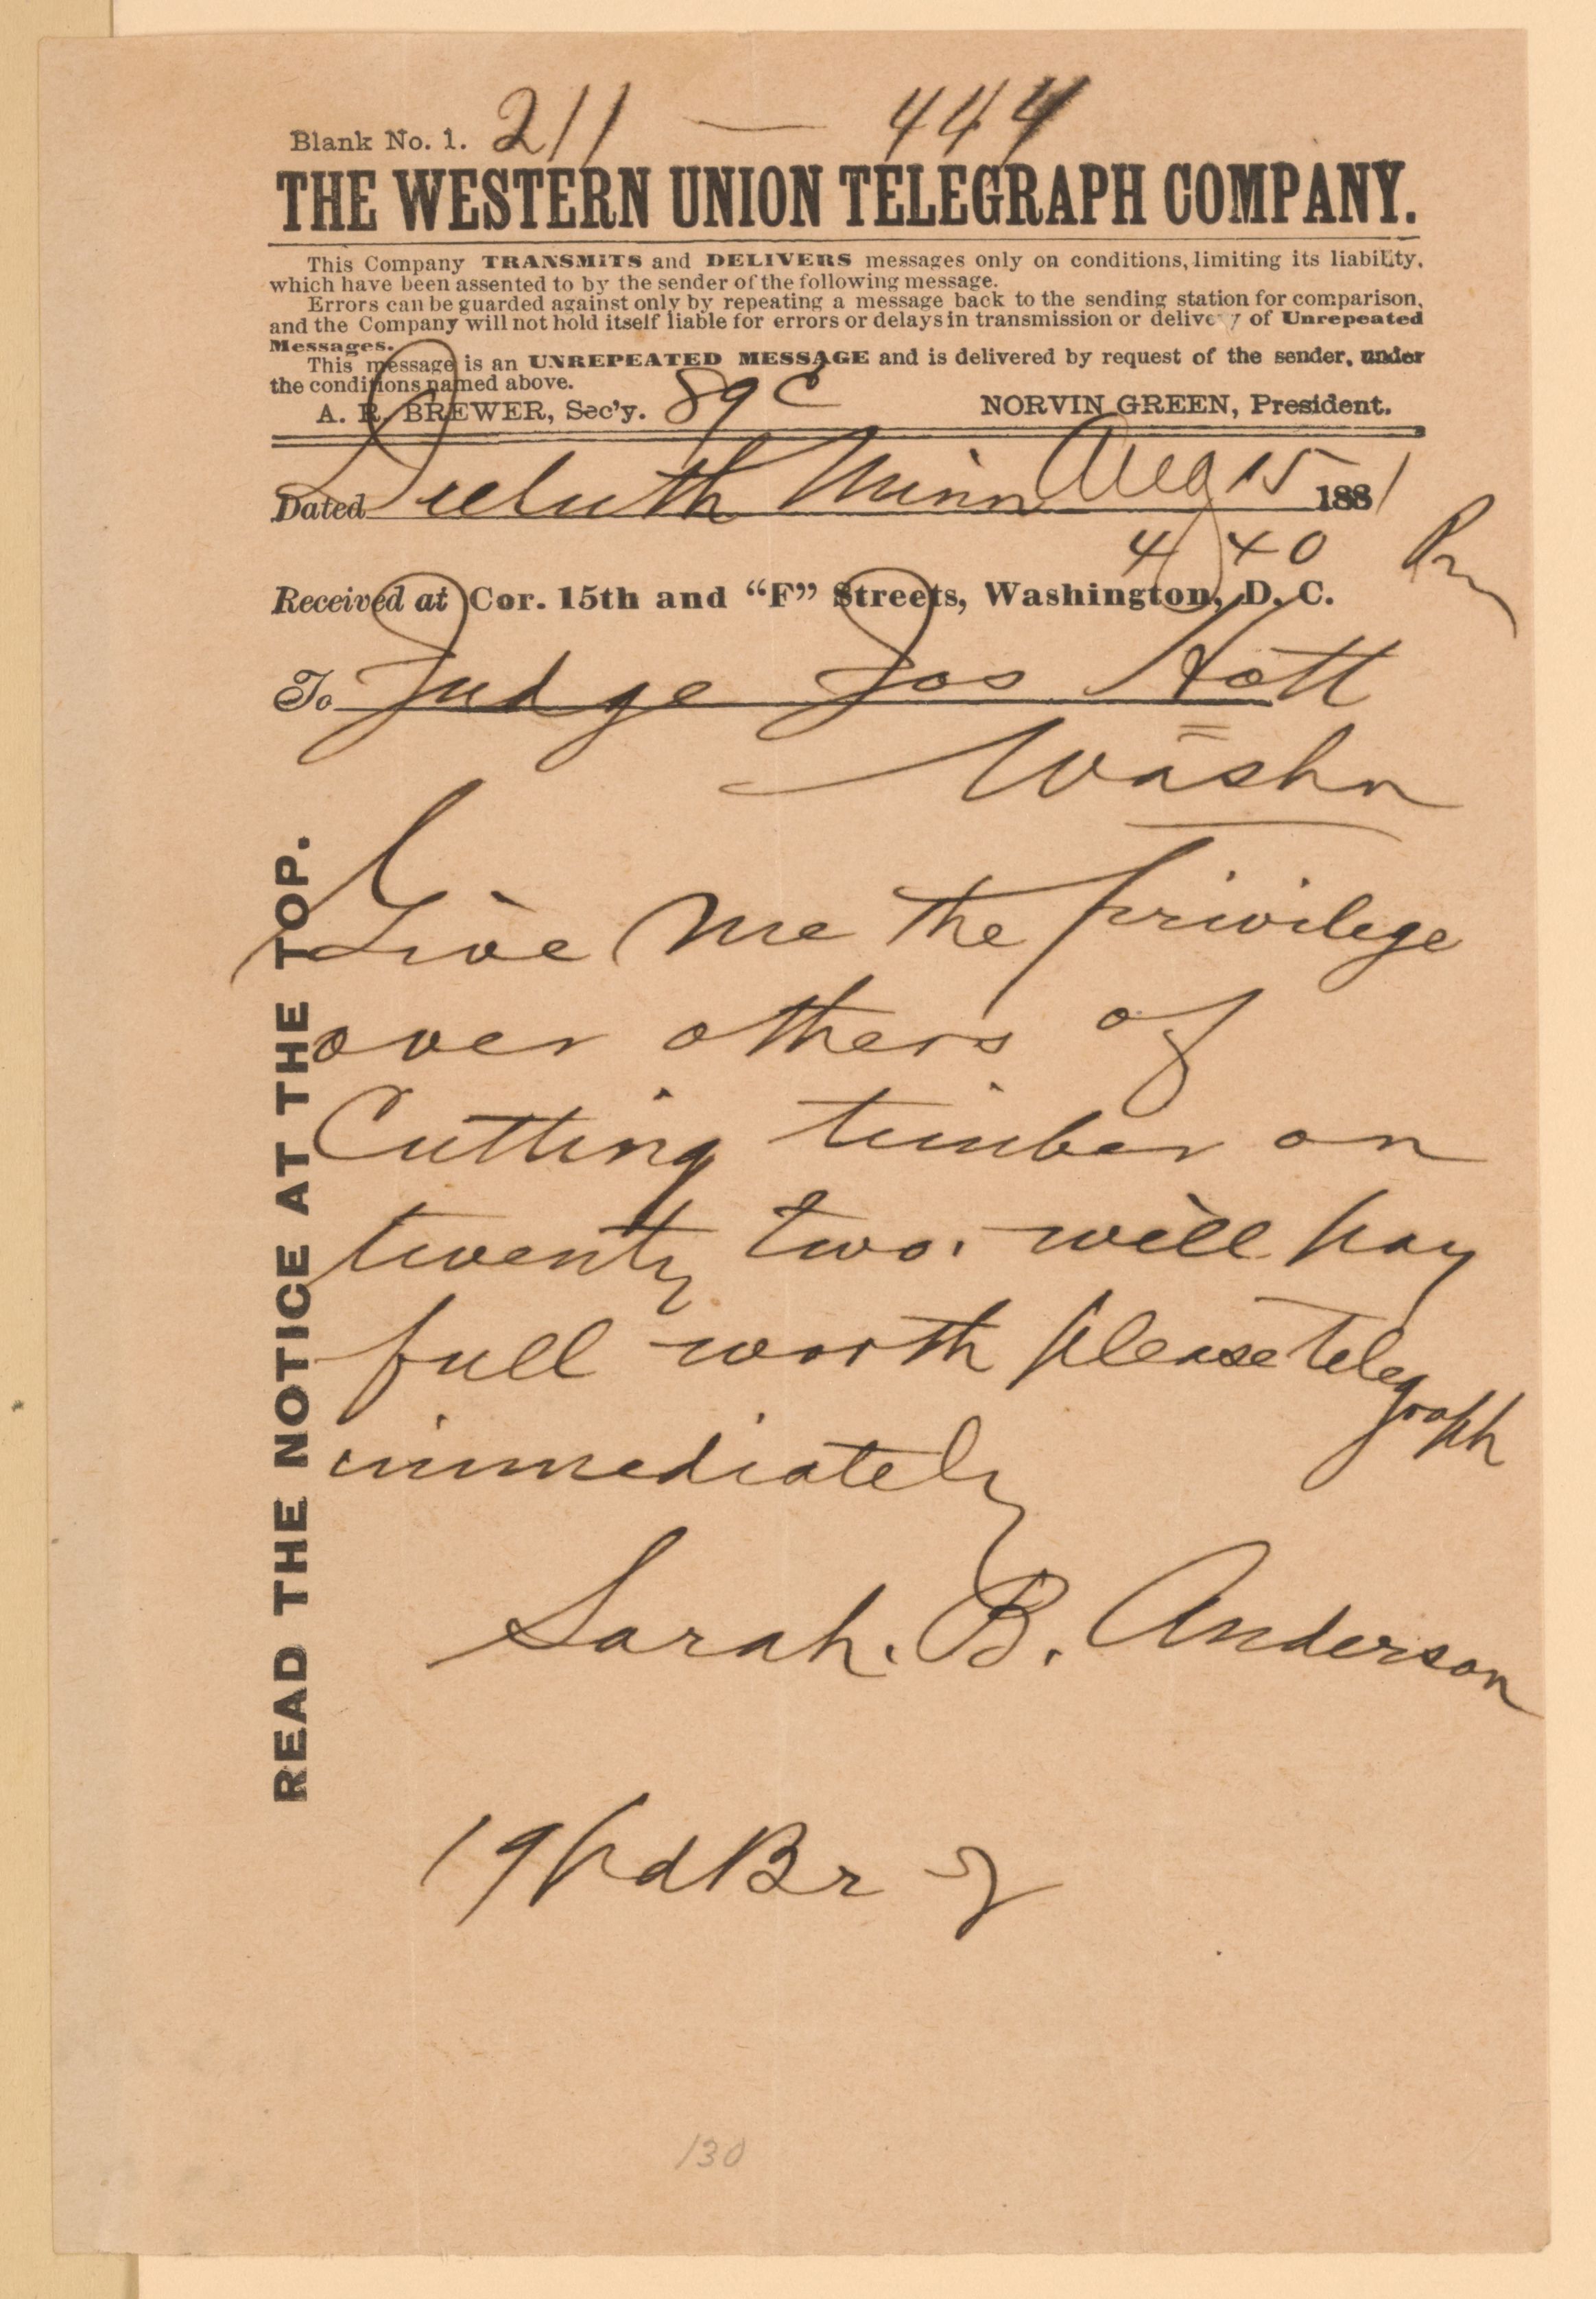 211 — 444
Blank No. 1.
THE WESTERN UNION TELEGRAPH COMPANY.
This Company TRANSMITS and DELIVERS messages only on conditions, limiting its liability,
which have been assented to by the sender of the following message.
Errors can be guarded against only by repeating a message back to the sending station for comparison,
and the Company will not hold itself liable for errors or delays in transmission or delivery of Unrepeated
Messages.
This message is an UNREPEATED MESSAGE and is delivered by request of the sender, under
the conditions named above.
A. R. BREWER, Sec'y. 89 C NORVIN GREEN, President.
Dated Duluth Minn Aug 15 1881
4 40 Pm
Received at Cor. 15th and “F” Streets, Washington, D. C.
To Judge Jos Hott
Washn
Give me the privilege
over others of
Cutting timber on
twenty two. will pay
full worth please telegraph
immediately
Sarah. B. Anderson
19 Pd Br
130
READ THE NOTICE AT THE TOP.